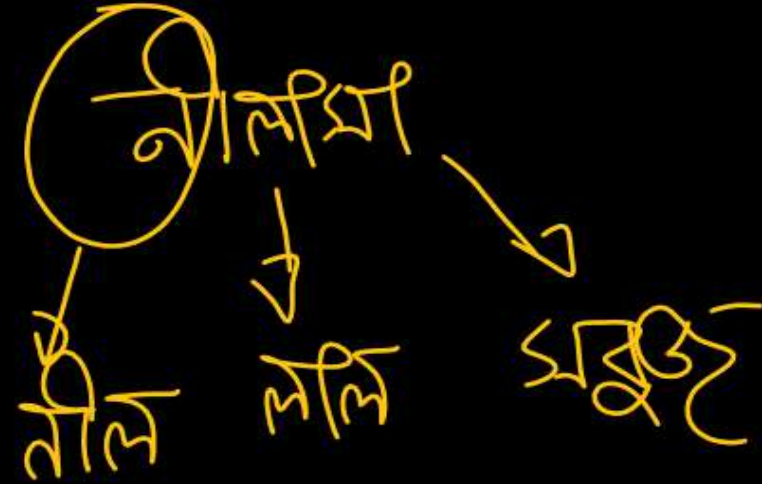 নীলাসা
নীল লাল সবুজ